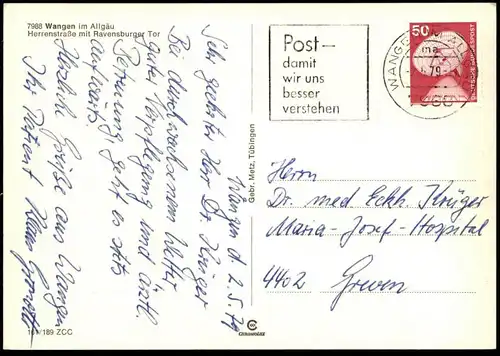 7988 Wangen im Allgäu
Herrenstraße mit Ravensburger Tor
Wangen d. 2.5.79
Sehr geehrter Herr Dr. Krüger
Bei durchwachsenem Wetter
guter Verpflegung und ärztl.
Betreuung geht es stets
aufwärts.
Herzliche Grüße aus Wangen
Ihr Patient
189 ZCC
Gebr. Metz, Tübingen
Post-
damit
wir uns
besser
verstehen
50
DEUTSCHE BUNDESPOST
Herrn
Dr. med Eckh. Krüger
Maria-Josef-Hospital
4402 Greven